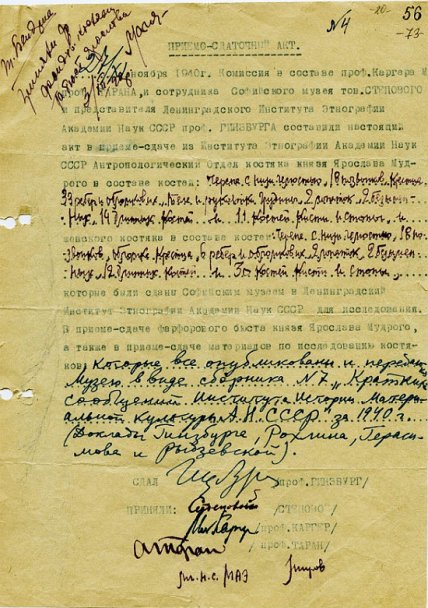 №4
56
-73-
ПРИЕМО-СДАТОЧНЫЙ АКТ.
ноября 1940г. Комиссия в составе проф. Каргера М
ТАРАНА, и сотрудника Софийского музея тов. СТУПОВОГО
и представителя Ленинградского Института Этнографии
Академии Наук СССР проф. ГИНЗБУРГА составила настоящий
акт в приеме-сдаче из Института Этнографии Академии Наук
СССР Антропологический Отдел костяка князя Ярослава Муд-
рого в составе костей: Череп с ниж. челюстью, 18 позвонков, крестец
33 ребер обломков, 2 лопаток, 2
14 длинных костей и 11 костей кисти и стопы, и
женского костяка в составе костей: Череп с ниж. челюстью, 18 по-
звонков, крестца, 6 ребер и обломков, 2 лопаток, 2
12 длинных костей и 30 костей кисти и стопы,
которые были сданы Софийским музеем в Ленинградский
Институт Этнографии Академии Наук СССР для исследования.
В приеме-сдаче фарфорового бюста князя Ярослава Мудрого,
а также в приеме-сдаче материалов по исследованию костя-
ков, которые все опубликованы и переданы
Музею в виде сборника №7 „Кратких
сообщений Института Истории Матери-
альной культуры А.Н. СССР" за 1940 г.
(Доклады Гинзбурга, Рохлина, Гераси-
мова и Рыдзевской).
СДАЛ /проф. ГИНЗБУРГ/
ПРИНЯЛИ: Ступовой /СТУПОВОЙ/
/проф. КАРГЕР/
/проф. ТАРАН/
мл. н.с. МАЭ